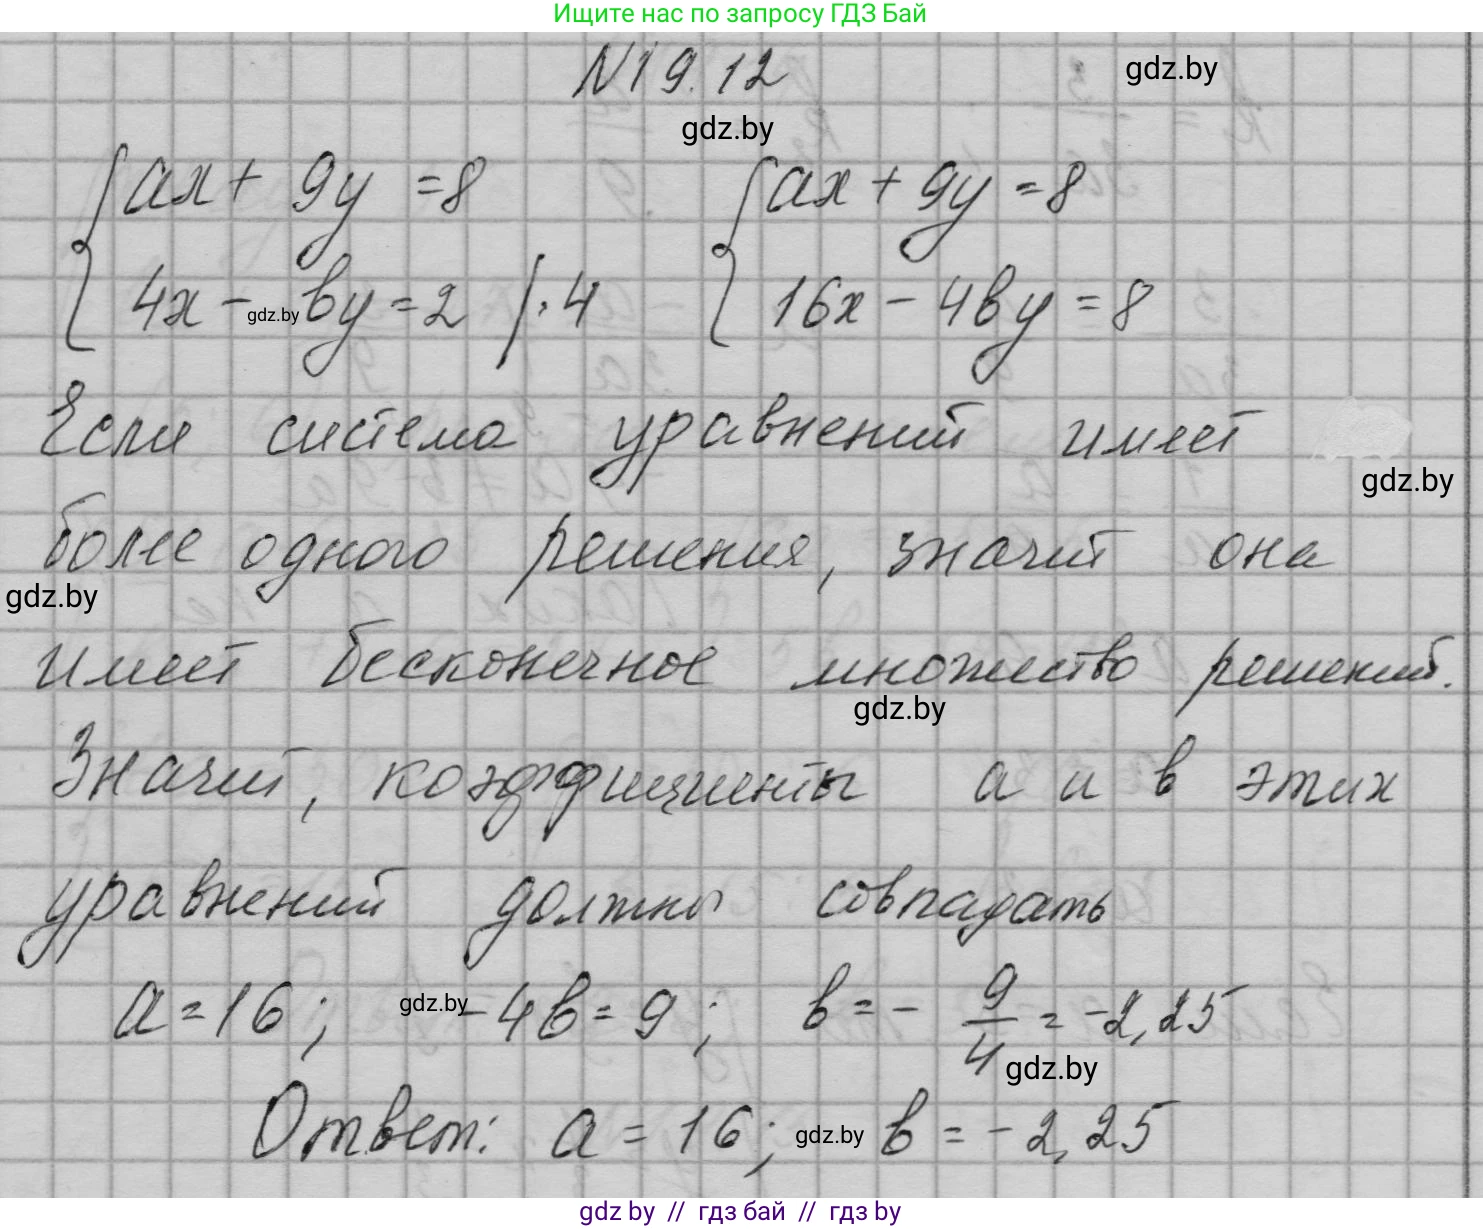 Ищите нас по запросу ГДЗ Бай
N19.12
gdz.by
gdz.by
ax + 9y = 8
ax + 9y = 8
4x - by = 2 | · 4
gdz.by
16x - 4by = 8
Если система уравнений имеет
gdz.by
более одного решения, значит она
gdz.by
имеет бесконечное множество решений.
gdz.by
Значит, коэффициенты a и b этих
уравнений должны совпадать
a = 16; -4b = 9; b = - 9/4 = -2,25
gdz.by
gdz.by
Ответ: a = 16; b = -2,25
gdz.by
gdz by // гдз бай // гдз by